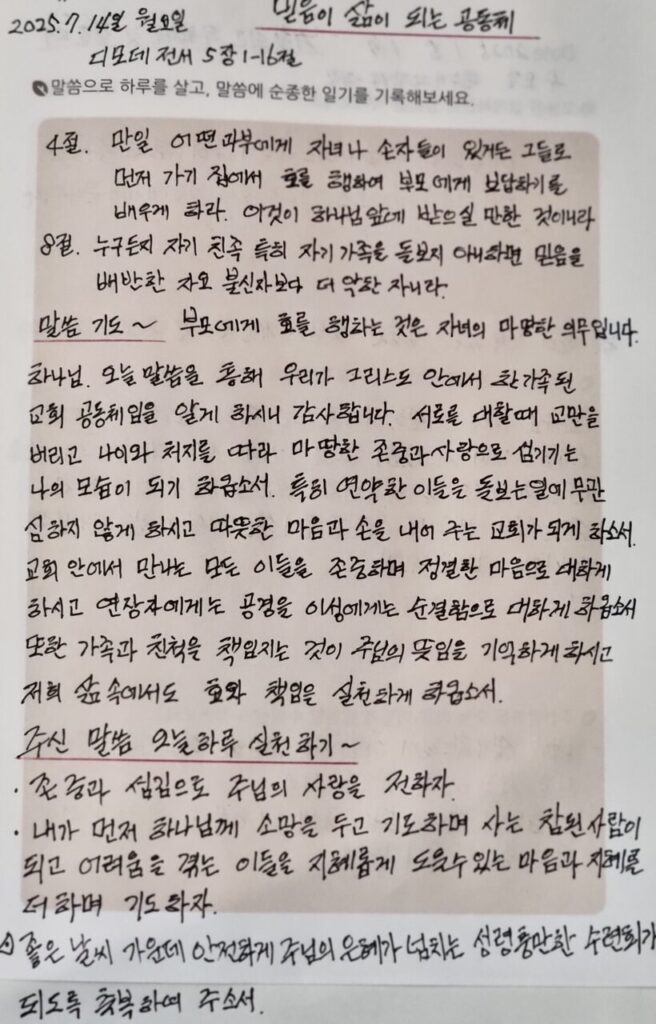 2025.7.14일 월요일
믿음이 삶이 되는 공동체
디모데 전서 5장 1-16절
말씀으로 하루를 살고, 말씀에 순종한 일기를 기록해보세요.
4절. 만일 어떤 과부에게 자녀나 손자들이 있거든 그들로
먼저 자기 집에서 효를 행하여 부모에게 보답하기를
배우게 하라. 이것이 하나님 앞에 받으실 만한 것이니라
8절. 누구든지 자기 친족 특히 자기 가족을 돌보지 아니하면 믿음을
배반한 자요 불신자보다 더 악한 자니라.
말씀 기도~ 부모에게 효를 행하는 것은 자녀의 마땅한 의무입니다.
하나님. 오늘 말씀을 통해 우리가 그리스도 안에서 한 가족 된
교회 공동체임을 알게 하시니 감사합니다. 서로를 대할때 교만을
버리고 나이와 처지를 따라 마땅한 존중과 사랑으로 섬기기는
나의 모습이 되기 하옵소서. 특히 연약한 이들을 돌보는 일에 무관
심하지 않게 하시고 따뜻한 마음과 손을 내어 주는 교회가 되게 하소서.
교회 안에서 만나는 모든 이들을 존중하며 정결한 마음으로 대하게
하시고 연장자에게는 공경을 이성에게는 순결함으로 대하게 하옵소서
또한 가족과 친척을 책임지는 것이 주님의 뜻임을 기억하게 하시고
저희 삶 속에서도 효와 책임을 실천하게 하옵소서.
주신 말씀 오늘하루 실천하기~
· 존중과 섬김으로 주님의 사랑을 전하자.
· 내가 먼저 하나님께 소망을 두고 기도하며 사는 참된 사람이
되고 어려움을 겪는 이들을 지혜롭게 도울수 있는 마음과 지혜를
더하며 기도하자.
좋은 날씨 가운데 안전하게 주님의 은혜가 넘치는 성령충만한 수련회가
되도록 축복하여 주소서.